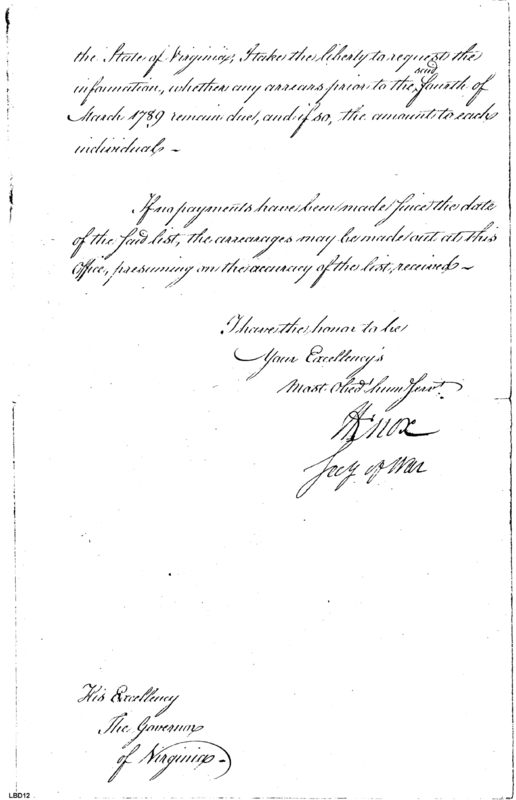 the State of Virginia; I take the liberty to request the
information, whether any arrears prior to the said fourth of
March 1789 remain due, and if so, the amount to each
individual –
If no payments have been made since the date
of the said list, the arrearages may be made out at this
Office, presuming on the accuracy of the list, received –
I have the honor to be
Your Excellency's
Most Obedt hum Servt.
HKnox
Secy of War
His Excellency
The Governor
of Virginia –
LBD12